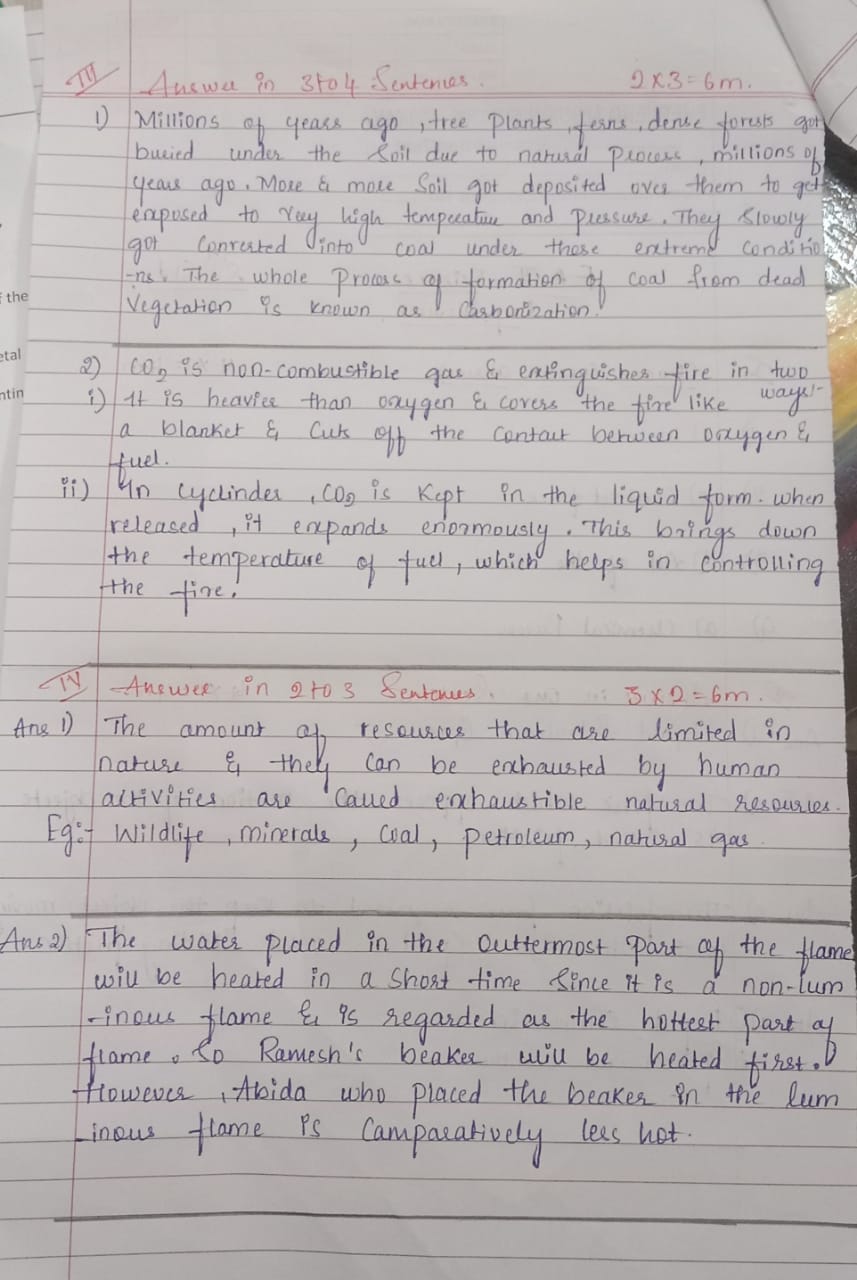 III Answer in 3 to 4 Sentences. 2 x 3 = 6m.
1) Millions of years ago, tree plants, ferns, dense forests got
buried under the soil due to natural process, millions of
years ago. More & more soil got deposited over them to get
exposed to very high temperature and pressure. They slowly
got converted into coal under these extreme conditio
-ns. The whole process of formation of coal from dead
Vegetation is known as Carbonization.
f the
etal
ntin
2) CO2 is non-combustible gas & extinguishes fire in two
ways:-
i) It is heavier than oxygen & covers the fire like
a blanket & cuts off the contact between oxygen &
fuel.
ii) In cyclinder, CO2 is kept in the liquid form. when
released, it expands enormously. This brings down
the temperature of fuel, which helps in controlling
the fire.
IV Answer in 2 to 3 Sentences. 3 x 2 = 6m.
Ans 1) The amount of resources that are limited in
nature & they can be exhausted by human
activities are called exhaustible natural resources.
Eg:- Wildlife, minerals, coal, petroleum, natural gas
Ans 2) The water placed in the outtermost part of the flame
will be heated in a short time since it is a non-lum
-inous flame & is regarded as the hottest part of
flame. So Ramesh's beaker will be heated first.
However, Abida who placed the beaker in the lum
-inous flame is camparatively less hot.